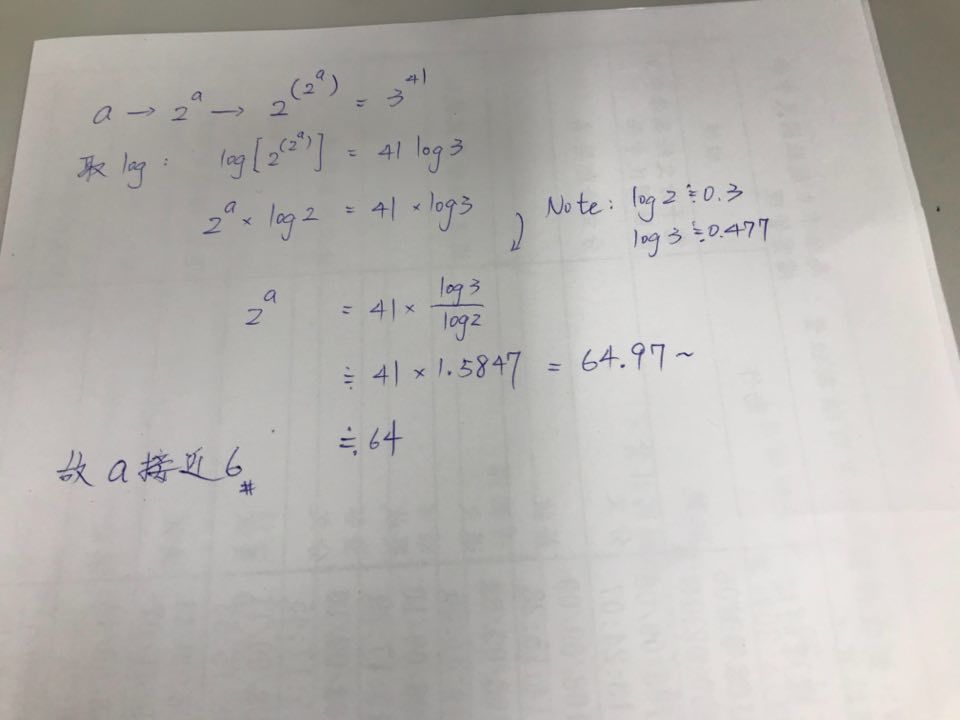 a → 2^a → 2^(2^a) = 3^41
取 log : log[2^(2^a)] = 41 log3
2^a × log2 = 41 × log3
Note: log2≒0.3
log3≒0.477
2^a = 41 × log3/log2
≒ 41 × 1.5847 = 64.97~
≒ 64
故 a 接近 6 #